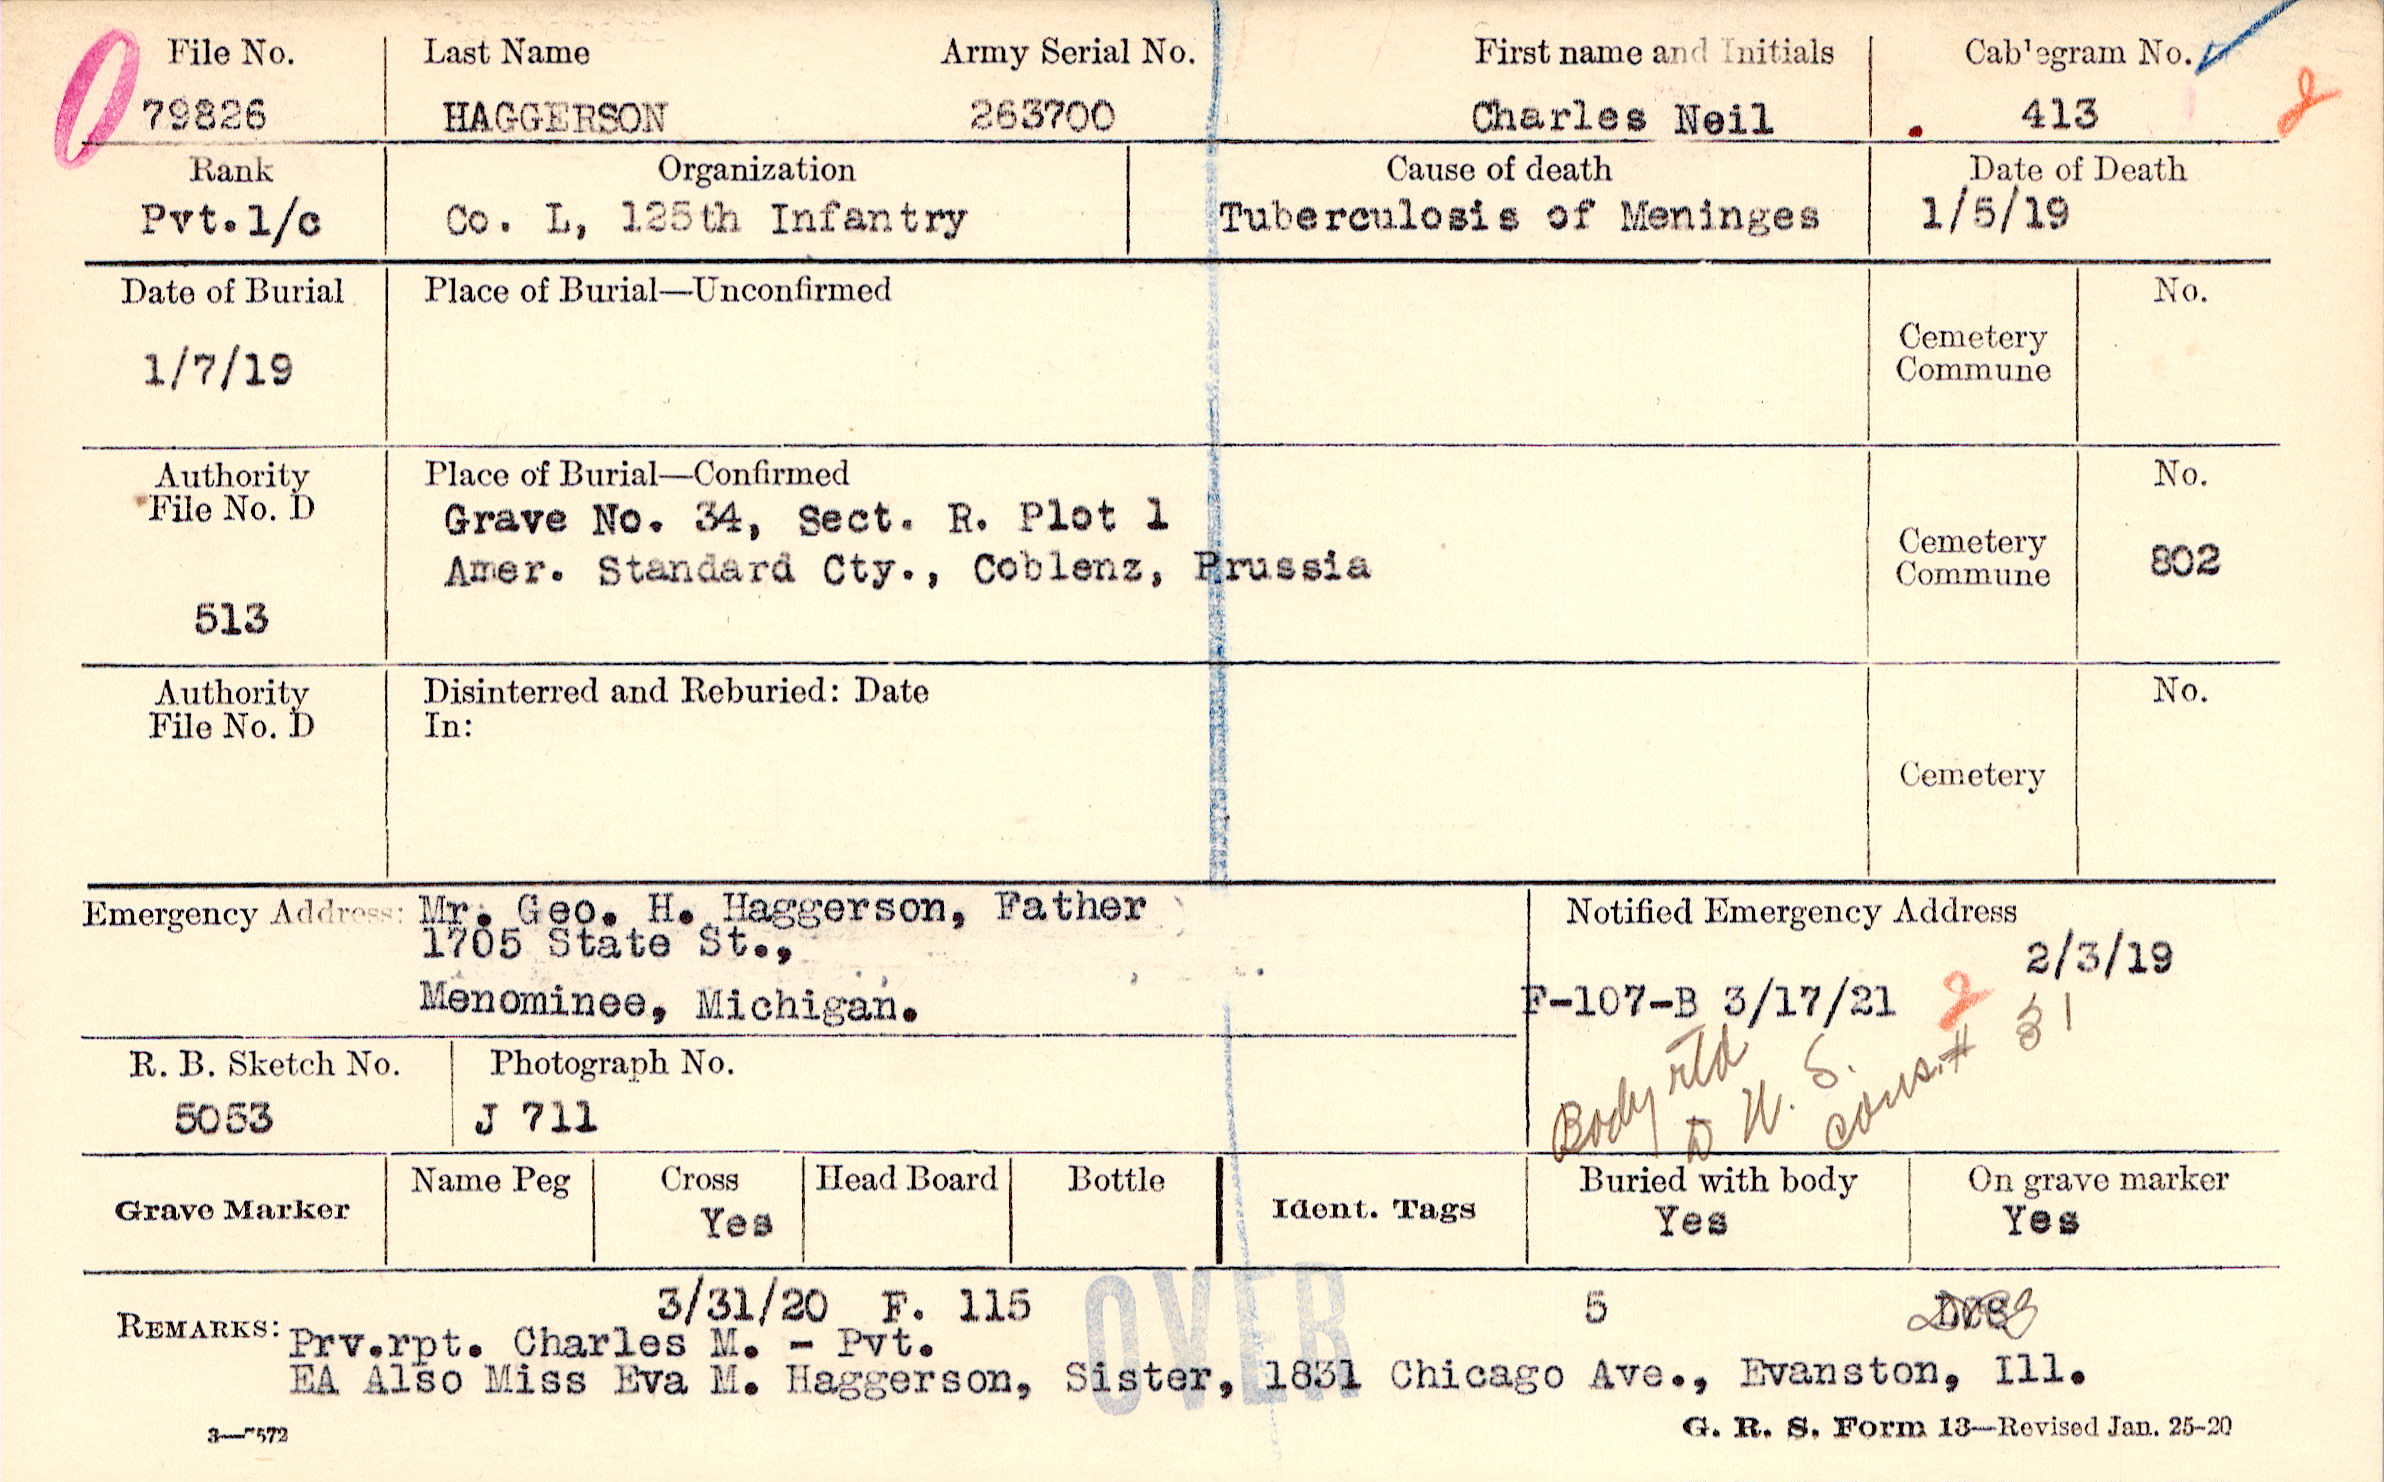 File No. Last Name Army Serial No. First name and Initials Cablegram No.
79826 HAGGERSON 263700 Charles Neil 413 2
Rank Organization Cause of death Date of Death
Pvt.1/c Co. L, 125th Infantry Tuberculosis of Meninges 1/5/19
Date of Burial Place of Burial—Unconfirmed No.
Cemetery
Commune
1/7/19
Authority Place of Burial—Confirmed No.
File No. D
Grave No. 34, Sect. R. Plot 1
Amer. Standard Cty., Coblenz, Prussia
Cemetery
Commune
802
513
Authority Disinterred and Reburied: Date No.
File No. D In:
Cemetery
Emergency Address: Mr. Geo. H. Haggerson, Father
1705 State St.,
Menominee, Michigan.
Notified Emergency Address
2/3/19
F-107-B 3/17/21 2
Body rtd
U. S.
cons.# 31
R. B. Sketch No. Photograph No.
5053 J 711
Grave Marker Name Peg Cross Head Board Bottle Ident. Tags Buried with body On grave marker
Yes Yes Yes
OVER
3/31/20 F. 115 5
REMARKS: Prv.rpt. Charles M. - Pvt.
EA Also Miss Eva M. Haggerson, Sister, 1831 Chicago Ave., Evanston, Ill.
3—7572 G. R. S. Form 13—Revised Jan. 25-20